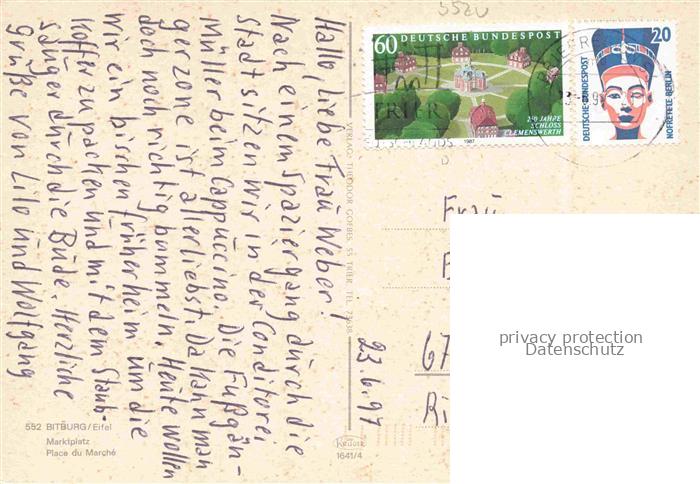 Hallo liebe Frau Weber!
Nach einem Spaziergang durch die
Stadt sitzen wir in der Conditorei
Müller beim Cappuccino. Die Fußgän-
gerzone ist allerliebst. Da kann man
doch noch richtig bummeln. Heute wollen
wir ein bischen früher heim um die
Koffer zu packen und mit dem Staub-
sauger durch die Bude. Herzliche
Grüße von Lilo und Wolfgang
552 BITBURG/Eifel
Marktplatz
Place du Marché
VERLAG: THEODOR GORBES 55 TRIER TEL.
Krüger
1641/4
23.6.97
552U
60 DEUTSCHE BUNDESPOST
250 JAHRE
SCHLOSS
CLEMENSWERTH
1987
TRIER
20
DEUTSCHE BUNDESPOST
NOFRETETE BERLIN
Frau
B
67
Ri
privacy protection
Datenschutz